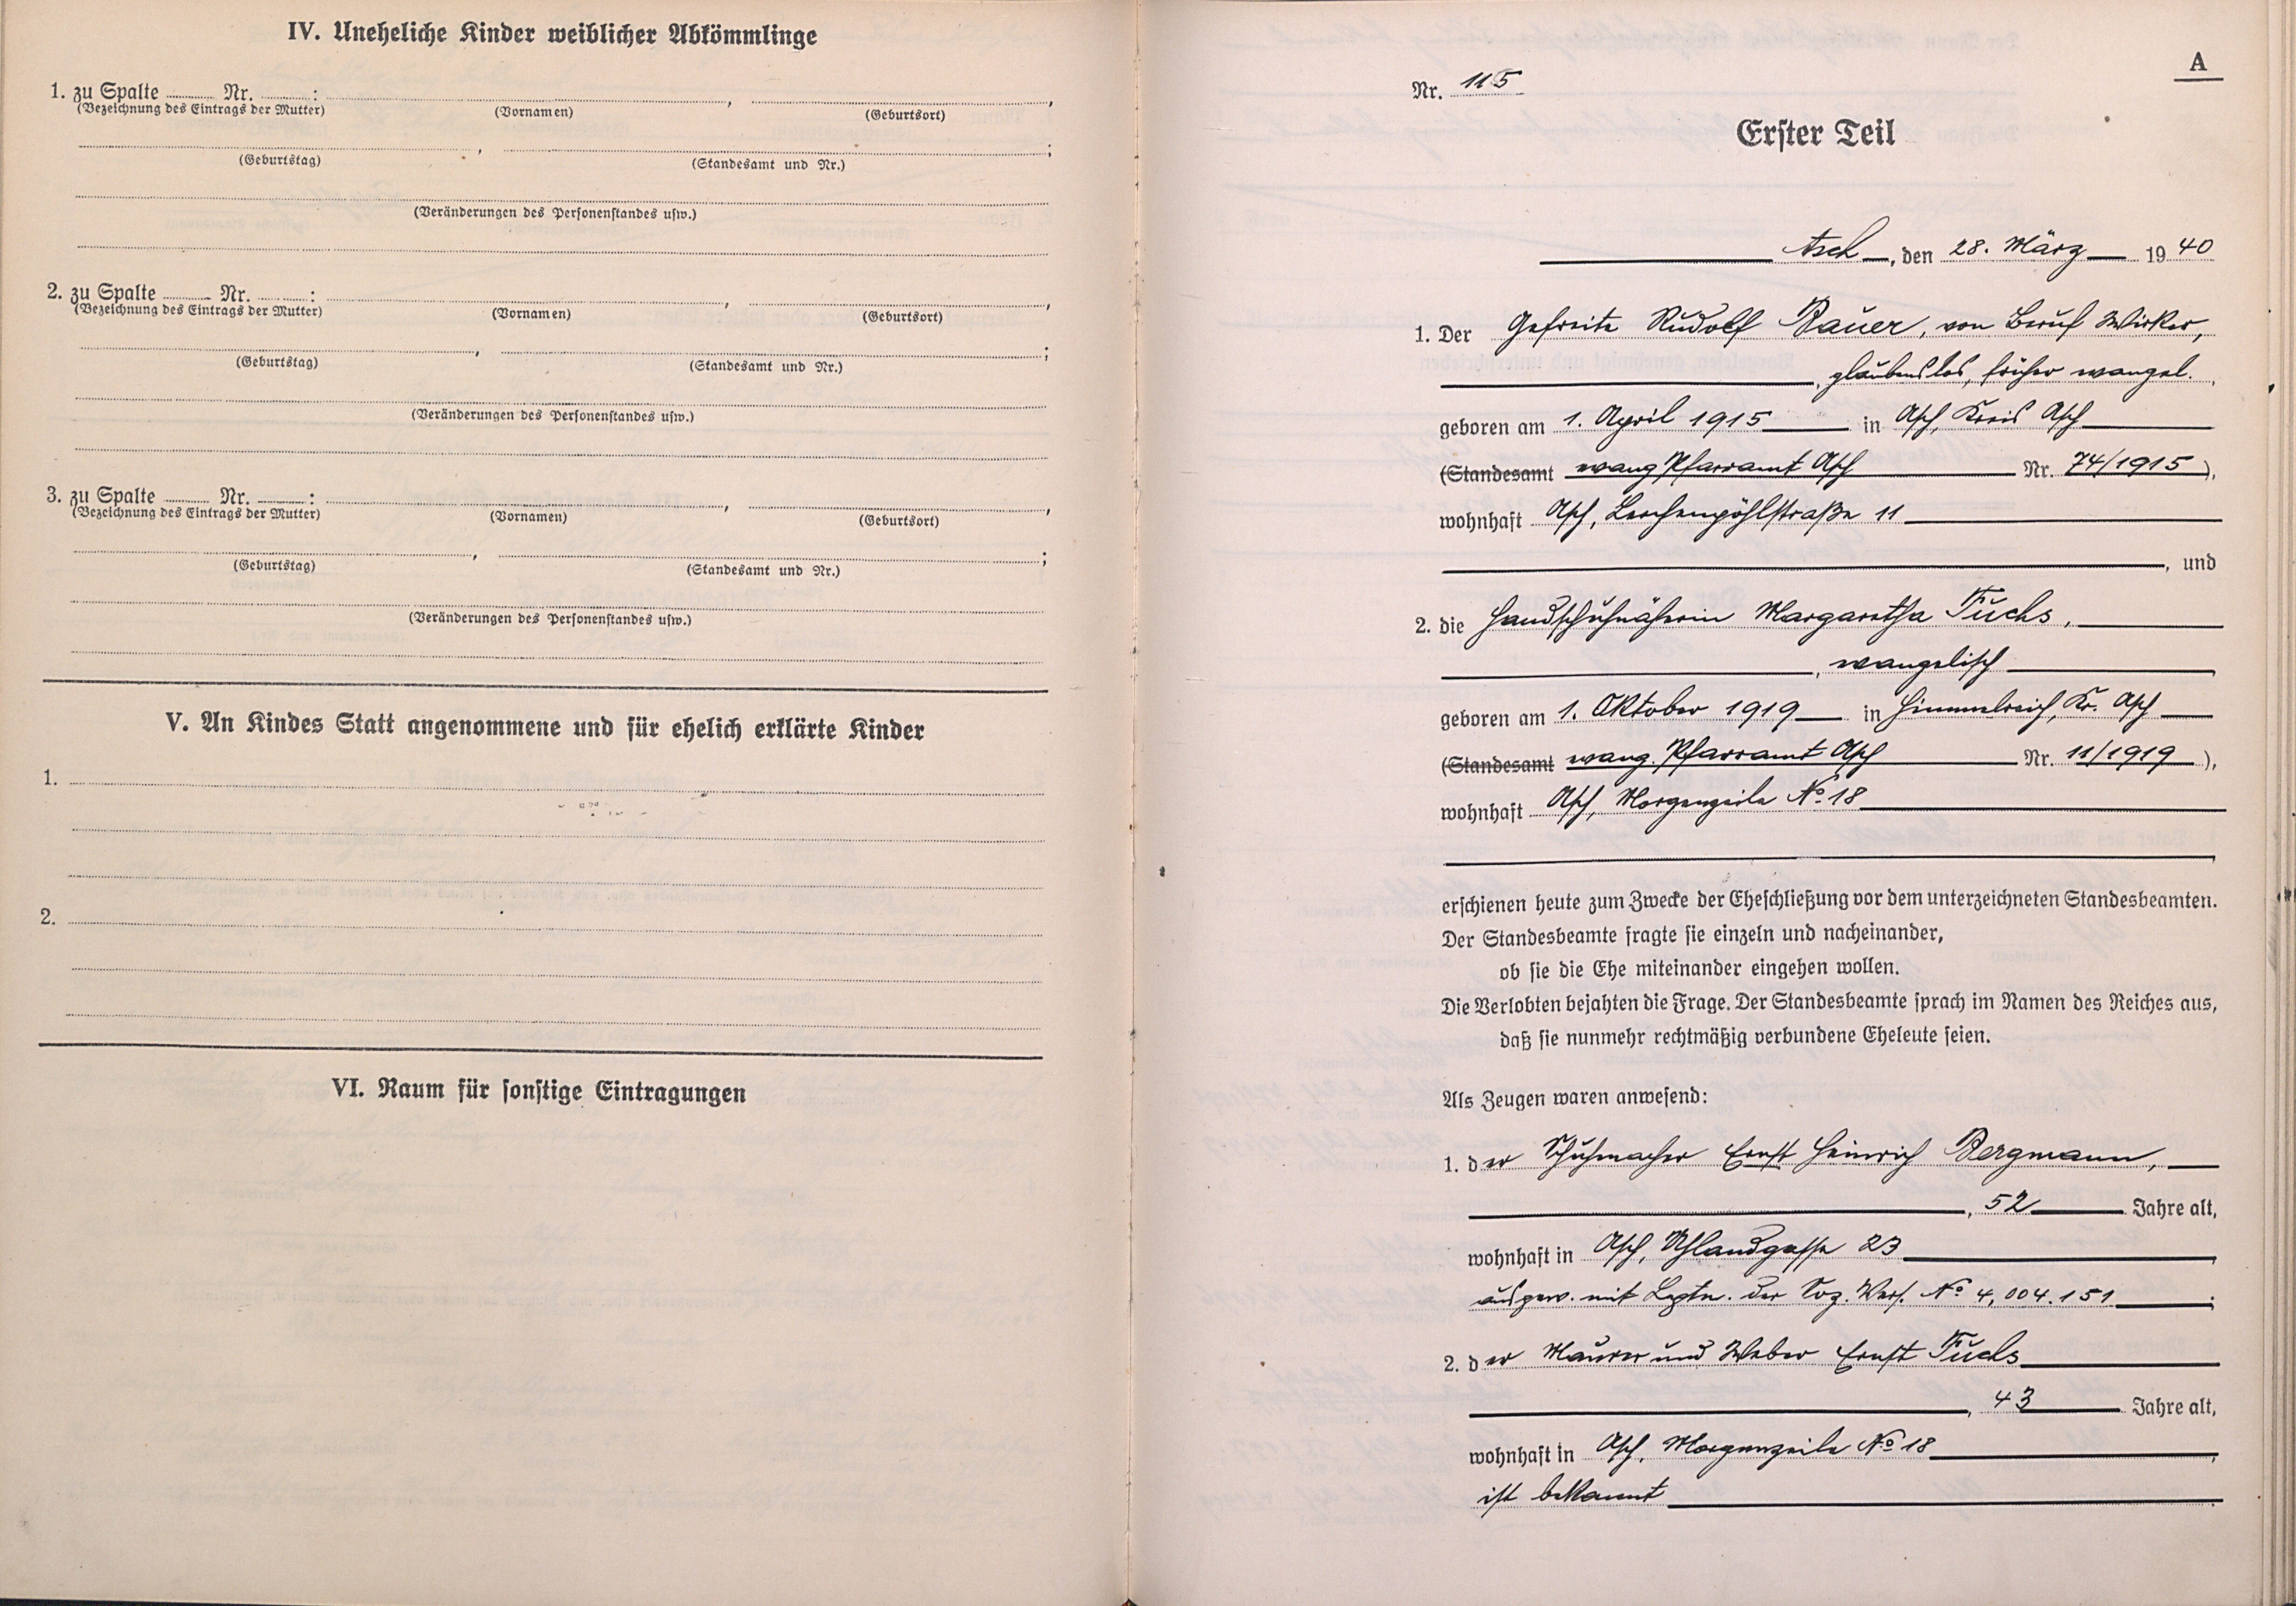 IV. Uneheliche Kinder weiblicher Abkömmlinge
1. zu Spalte ........ Nr. ........ :
(Bezeichnung des Eintrags der Mutter) (Vornamen) (Geburtsort)
(Geburtstag) (Standesamt und Nr.)
(Veränderungen des Personenstandes usw.)
2. zu Spalte ........ Nr. ........ :
(Bezeichnung des Eintrags der Mutter) (Vornamen) (Geburtsort)
(Geburtstag) (Standesamt und Nr.)
(Veränderungen des Personenstandes usw.)
3. zu Spalte ........ Nr. ........ :
(Bezeichnung des Eintrags der Mutter) (Vornamen) (Geburtsort)
(Geburtstag) (Standesamt und Nr.)
(Veränderungen des Personenstandes usw.)
V. An Kindes Statt angenommene und für ehelich erklärte Kinder
1.
2.
VI. Raum für sonstige Eintragungen
A
Nr. 115
Erster Teil
Asch, den 28. März 1940
1. Der Gefreite Rudolf Bauer, von Beruf Wirker,
, glaubenslos, früher evangel.
geboren am 1. April 1915 in Asch, Kreis Asch
(Standesamt evang Pfarramt Asch Nr. 74/1915),
wohnhaft Asch, Lerchenpöhlstraße 11
, und
2. die Handschuhnäherin Margaretha Fuchs,
, evangelisch
geboren am 1. Oktober 1919 in Himmelreich, Kr. Asch
(Standesamt evang. Pfarramt Asch Nr. 11/1919),
wohnhaft Asch, Morgenzeile No 18
erschienen heute zum Zwecke der Eheschließung vor dem unterzeichneten Standesbeamten.
Der Standesbeamte fragte sie einzeln und nacheinander,
ob sie die Ehe miteinander eingehen wollen.
Die Verlobten bejahten die Frage. Der Standesbeamte sprach im Namen des Reiches aus,
daß sie nunmehr rechtmäßig verbundene Eheleute seien.
Als Zeugen waren anwesend:
1. der Schuhmacher Ernst Heinrich Bergmann,
, 52 Jahre alt,
wohnhaft in Asch, Uhlandgasse 23
ausgew. mit Legtn. der Soz. Vers. No 4,004.151 ;
2. der Maurer und Weber Ernst Fuchs
, 43 Jahre alt,
wohnhaft in Asch, Morgenzeile No 18
ist bekannt